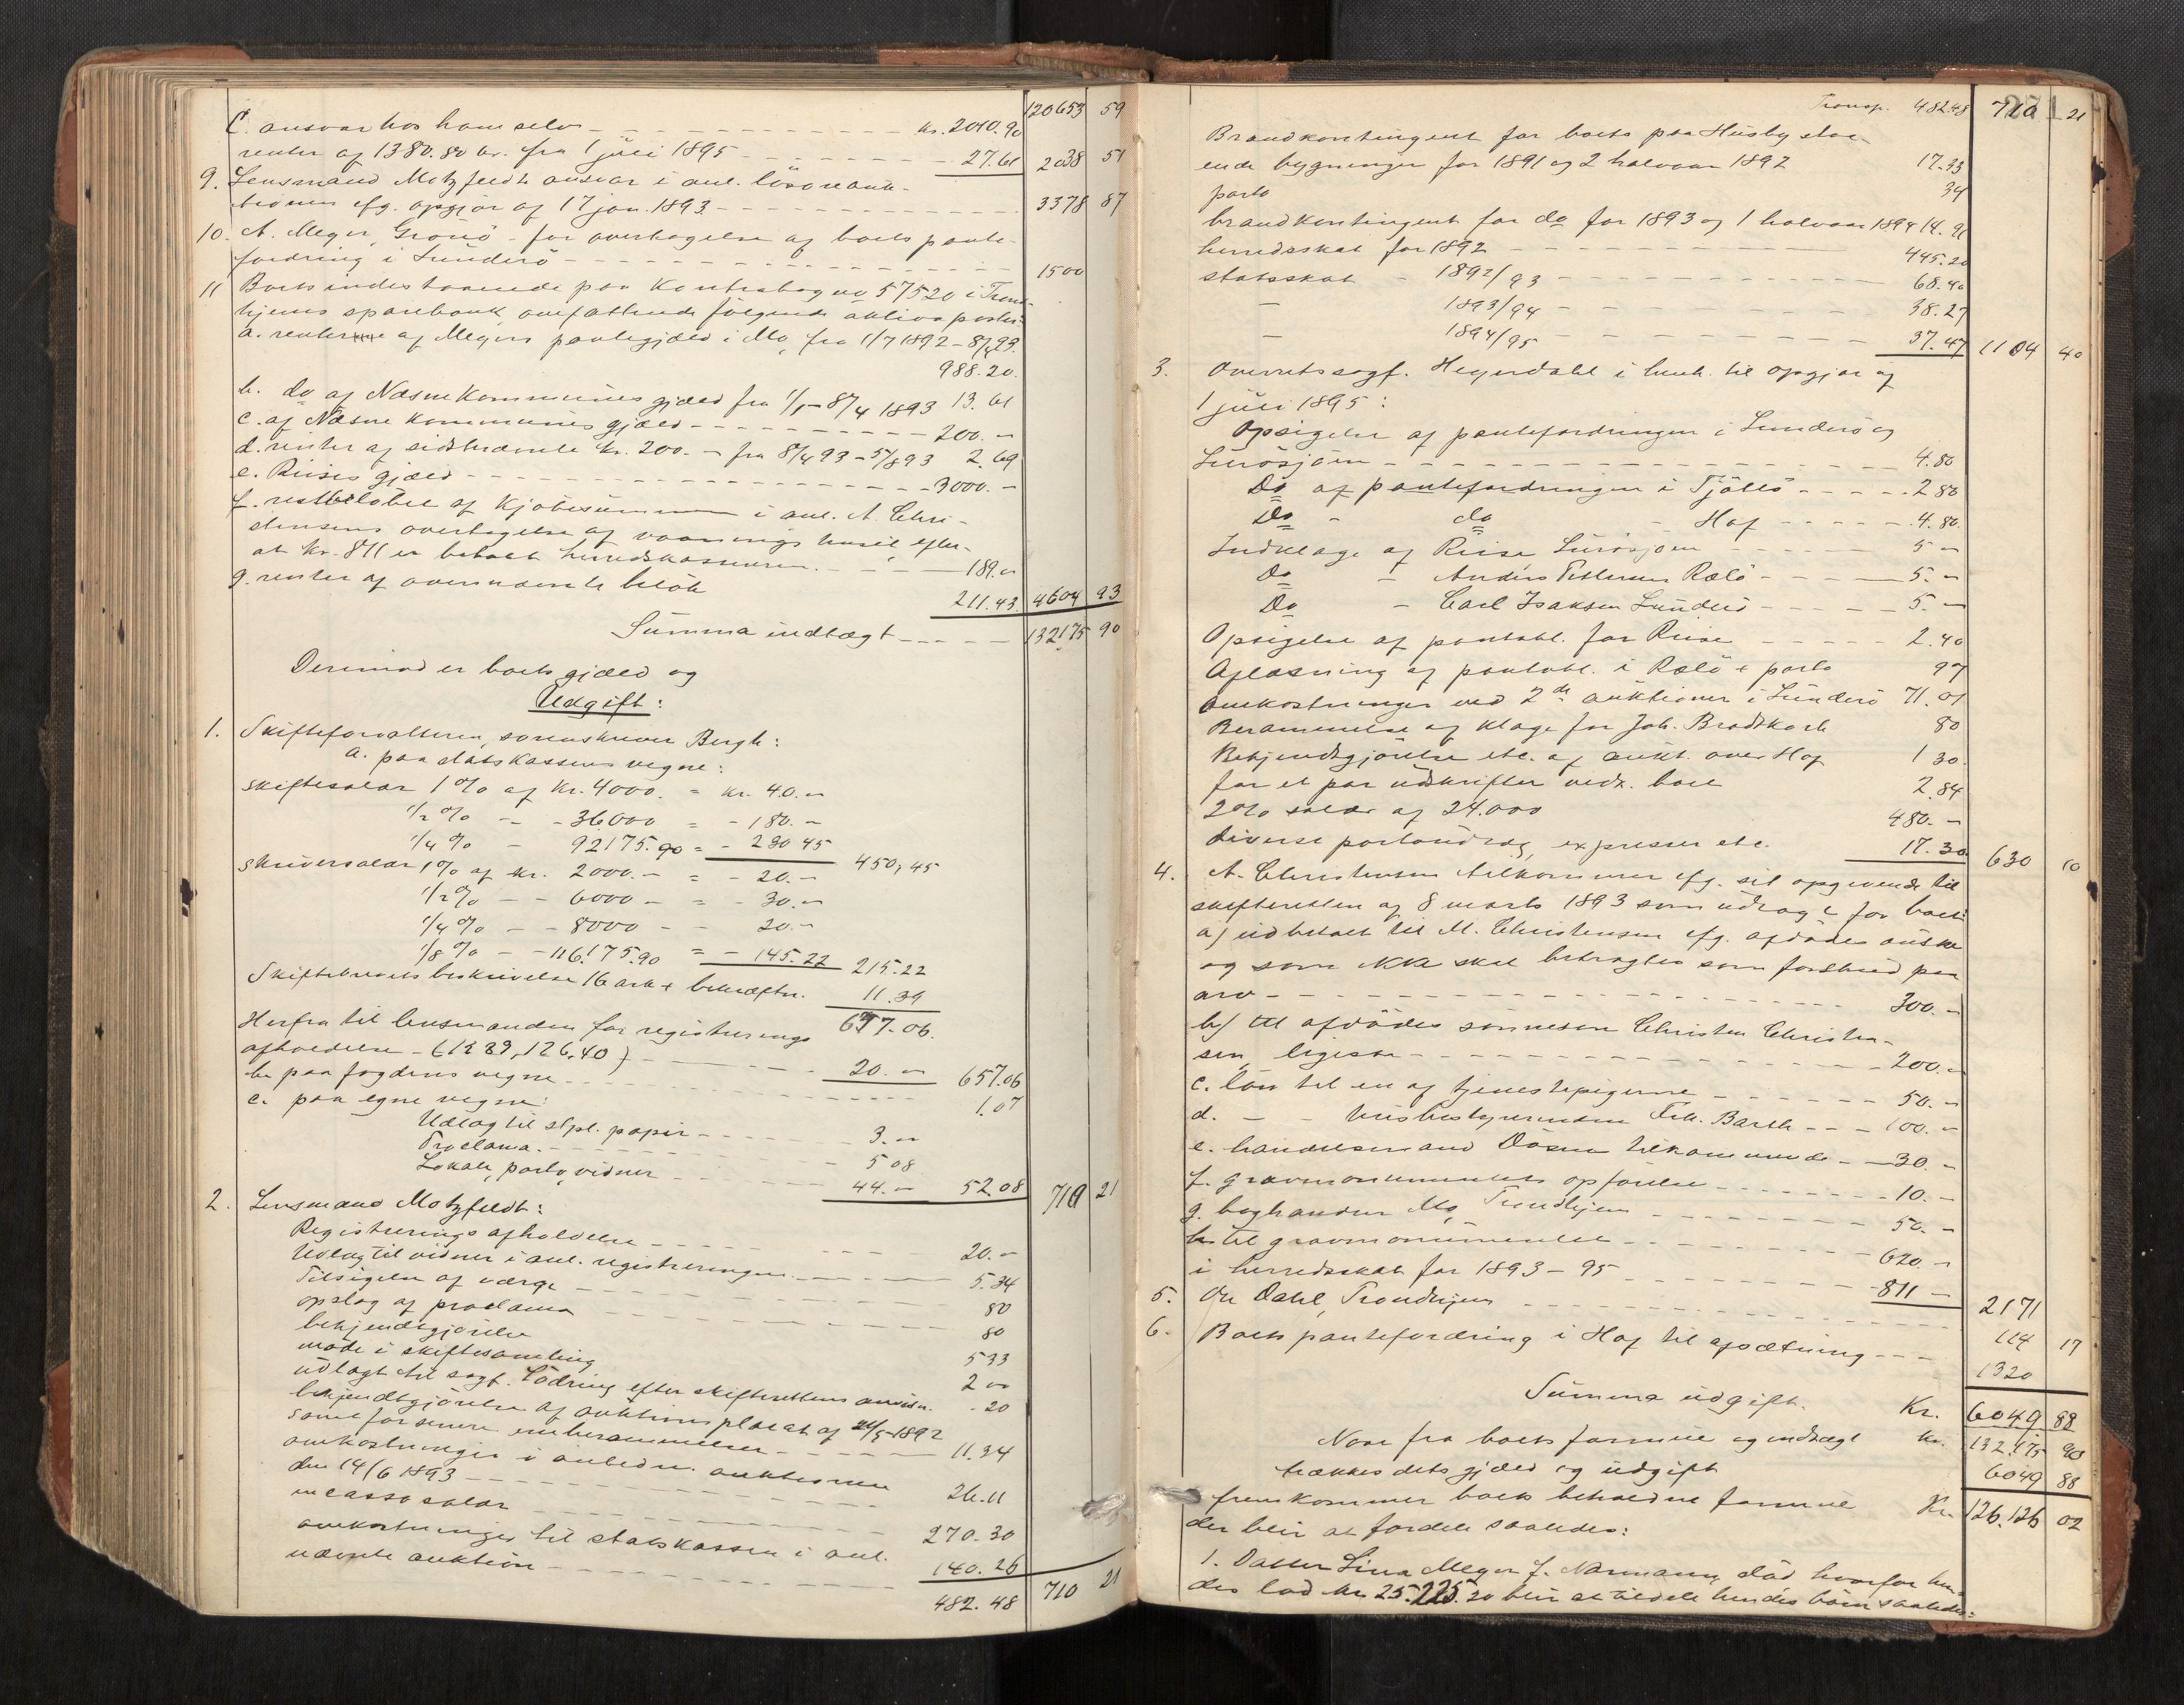 120653 59
C. ansvar hos ham selv kr. 2010.90
renter af 1380.80 kr. fra 1 juli 1895 27.61 2038 51
9. Lensmand Motzfeldts ansvar i anl. lösöreauk-
tionen efg. opgjör af 17 jan. 1893. 3378 87
10. A. Meyer, Grönö - for overtagelse af boets pante-
fordring i Sunderö 1500
11 Boets indestaaende paa Kontrabog no 57520 i Trond-
hjems sparebank omfattende fölgende aktivaposter:
a. renterne af Meyers pantegjæld i Mo, fra 1/7 1892 - 8/4 93.
988.20.
b. do af Næsne Kommunes gjæld fra 1/1 - 8/4 1893 13.61
c. af Næsne kommunes gjæld 200. -
d. renter af sidstnævnte kr. 200. - fra 8/4 93 - 5/8 93 2.69
e. Riises gjæld 3000. -
f. restbelöbet af kjöbesummen i anl. A. Chri-
stensens overtagelse af vaaningshuset efter-
at kr. 811 er betalt herredskassereren. 189. -
g. renter af ovennævnte belöb 211.43 4604 93
Summa indtægt 132175 90
Derimod er boets gjæld og
Udgift:
1. Skifteforvalteren, sorenskriver Bergh:
a. paa statskassens vegne:
skiftesalær 1% af kr. 4000. = kr. 40. -
1/2% - - 36000 = - 180. -
1/4% - 92175.90 = - 230 45 450,45
skriversalær 1% af kr. 2000. - = - 20. -
1/2% - - 6000 - = - 30. -
1/4% - - 8000 - - 20. -
1/8% - - 116.175.90 = - 145.22 215.22
Skiftebrevets beskrivelse 16 ark + bekræftn. 11.39
677.06.
Herfra til lensmanden for registrerings
afholdelse - (1289,126,40) 20. - 657.06
b. paa fogdens vegne 1.07
c. paa egne vegne:
Udlæg til stpl. papir 3. -
Proclama. 5 08
Lokale, porto, vidner 44. - 52.08 710 21
2. Lensmand Motzfeldt:
Registrerings afholdelse 20. -
Udlæg til vidner i anl. registreringen 5.34
Tilsigelse af værge 80
opslag af proclama 80
bekjendtgjörelse 533
möde i skiftesamling 2 -
udlagt til sagf. Lödring efter skifterettens anvisn. - 20
bekjendtgjörelse af auktionsplakat af 24/5-1892
samt for senere emberammelser 11.34
omkostninger i anledn. auktionen
den 14/6 1893 26.11
incassosalær 270.30
omkostninger til statskassen i anl.
nævnte auktion 140.26
482.48 710 21
Transp. 482.48 710 21
Brandkontingent for boets paa Husby staa-
ende bygninger for 1891 og 2 halvaar 1892 17.33
porto 34
brandkontingent for do for 1893 og 1 halvaar 1894 14.91
herredsskat for 1892 445.20
statsskat - 1892/93 68.40
- 1893/94 38.27
- 1894/95 37.47 1104 40
3. Overretssagf. Heyerdahl i henh. til opgjör af
1 juli 1895:
Opsigelse af pantefordringen i Sunderö og
Lurösjöen 4.80
Do af pantefordringen i Tjöttö 2 80
Do - do - Hof 4.80.
Indklage af Riise Lurösjöen 5 -
Do - Anders Pettersen Rælö 5. -
Do - Carl Isaksen Sunderö 5. -
Opsigelse af pantobl. for Riise 2.40
Aflæsning af pantobl. i Rælö + porto 97
omkostninger ved 2de auktioner i Sunderö 71.01
Berammelse af klage for Joh. Brodtkorb 80
Bekjendtgjörelse etc. af aukt. over Hof 1 30.
for et par udskrifter vedr. boet 2.84
2% salær af 24.000 480. -
diverse portoudlæg, expresser etc. 17.30 630 10
4. A. Christensen tilkommer efg. sit opgivende til
skifteretten af 8 marts 1893 som udlagt for boet:
a/ udbetalt til M. Christensen efg. afdödes önske
og som ikke skal betragtes som forskud paa
arv 300. -
b/ til afdödes sönnesön Christen Christen-
sen, ligesaa 200. -
c. lön til en af tjenestepigerne 50. -
d. - - husbestyrerinden Frk. Barth 100. -
e. handelsmand Dösen tilkommende 30. -
f. gravmonumentets opförelse 10. -
g. boghandler Mo, Trondhjem 50. -
h. til gravmonumentet 620. -
i herredsskat for 1893 - 95 811 - 2171
5. Ole Dahl, Trondhjem 114 17
6. Boets pantefordring i Hof til afsætning 1320
Summa udgift. Kr. 6049 88
Naar fra boets formue og indtægt kr. 132.175 90
trækkes dets gjæld og udgift 6049 88
fremkommer boets beholdne formue Kr. 126.126 02
der blir at fordele saaledes:
1. Datter Lina Meyer f. Normann, död, hvorfor hen-
des lod kr. 25.225.20 blir at tildele hendes börn saaledes: